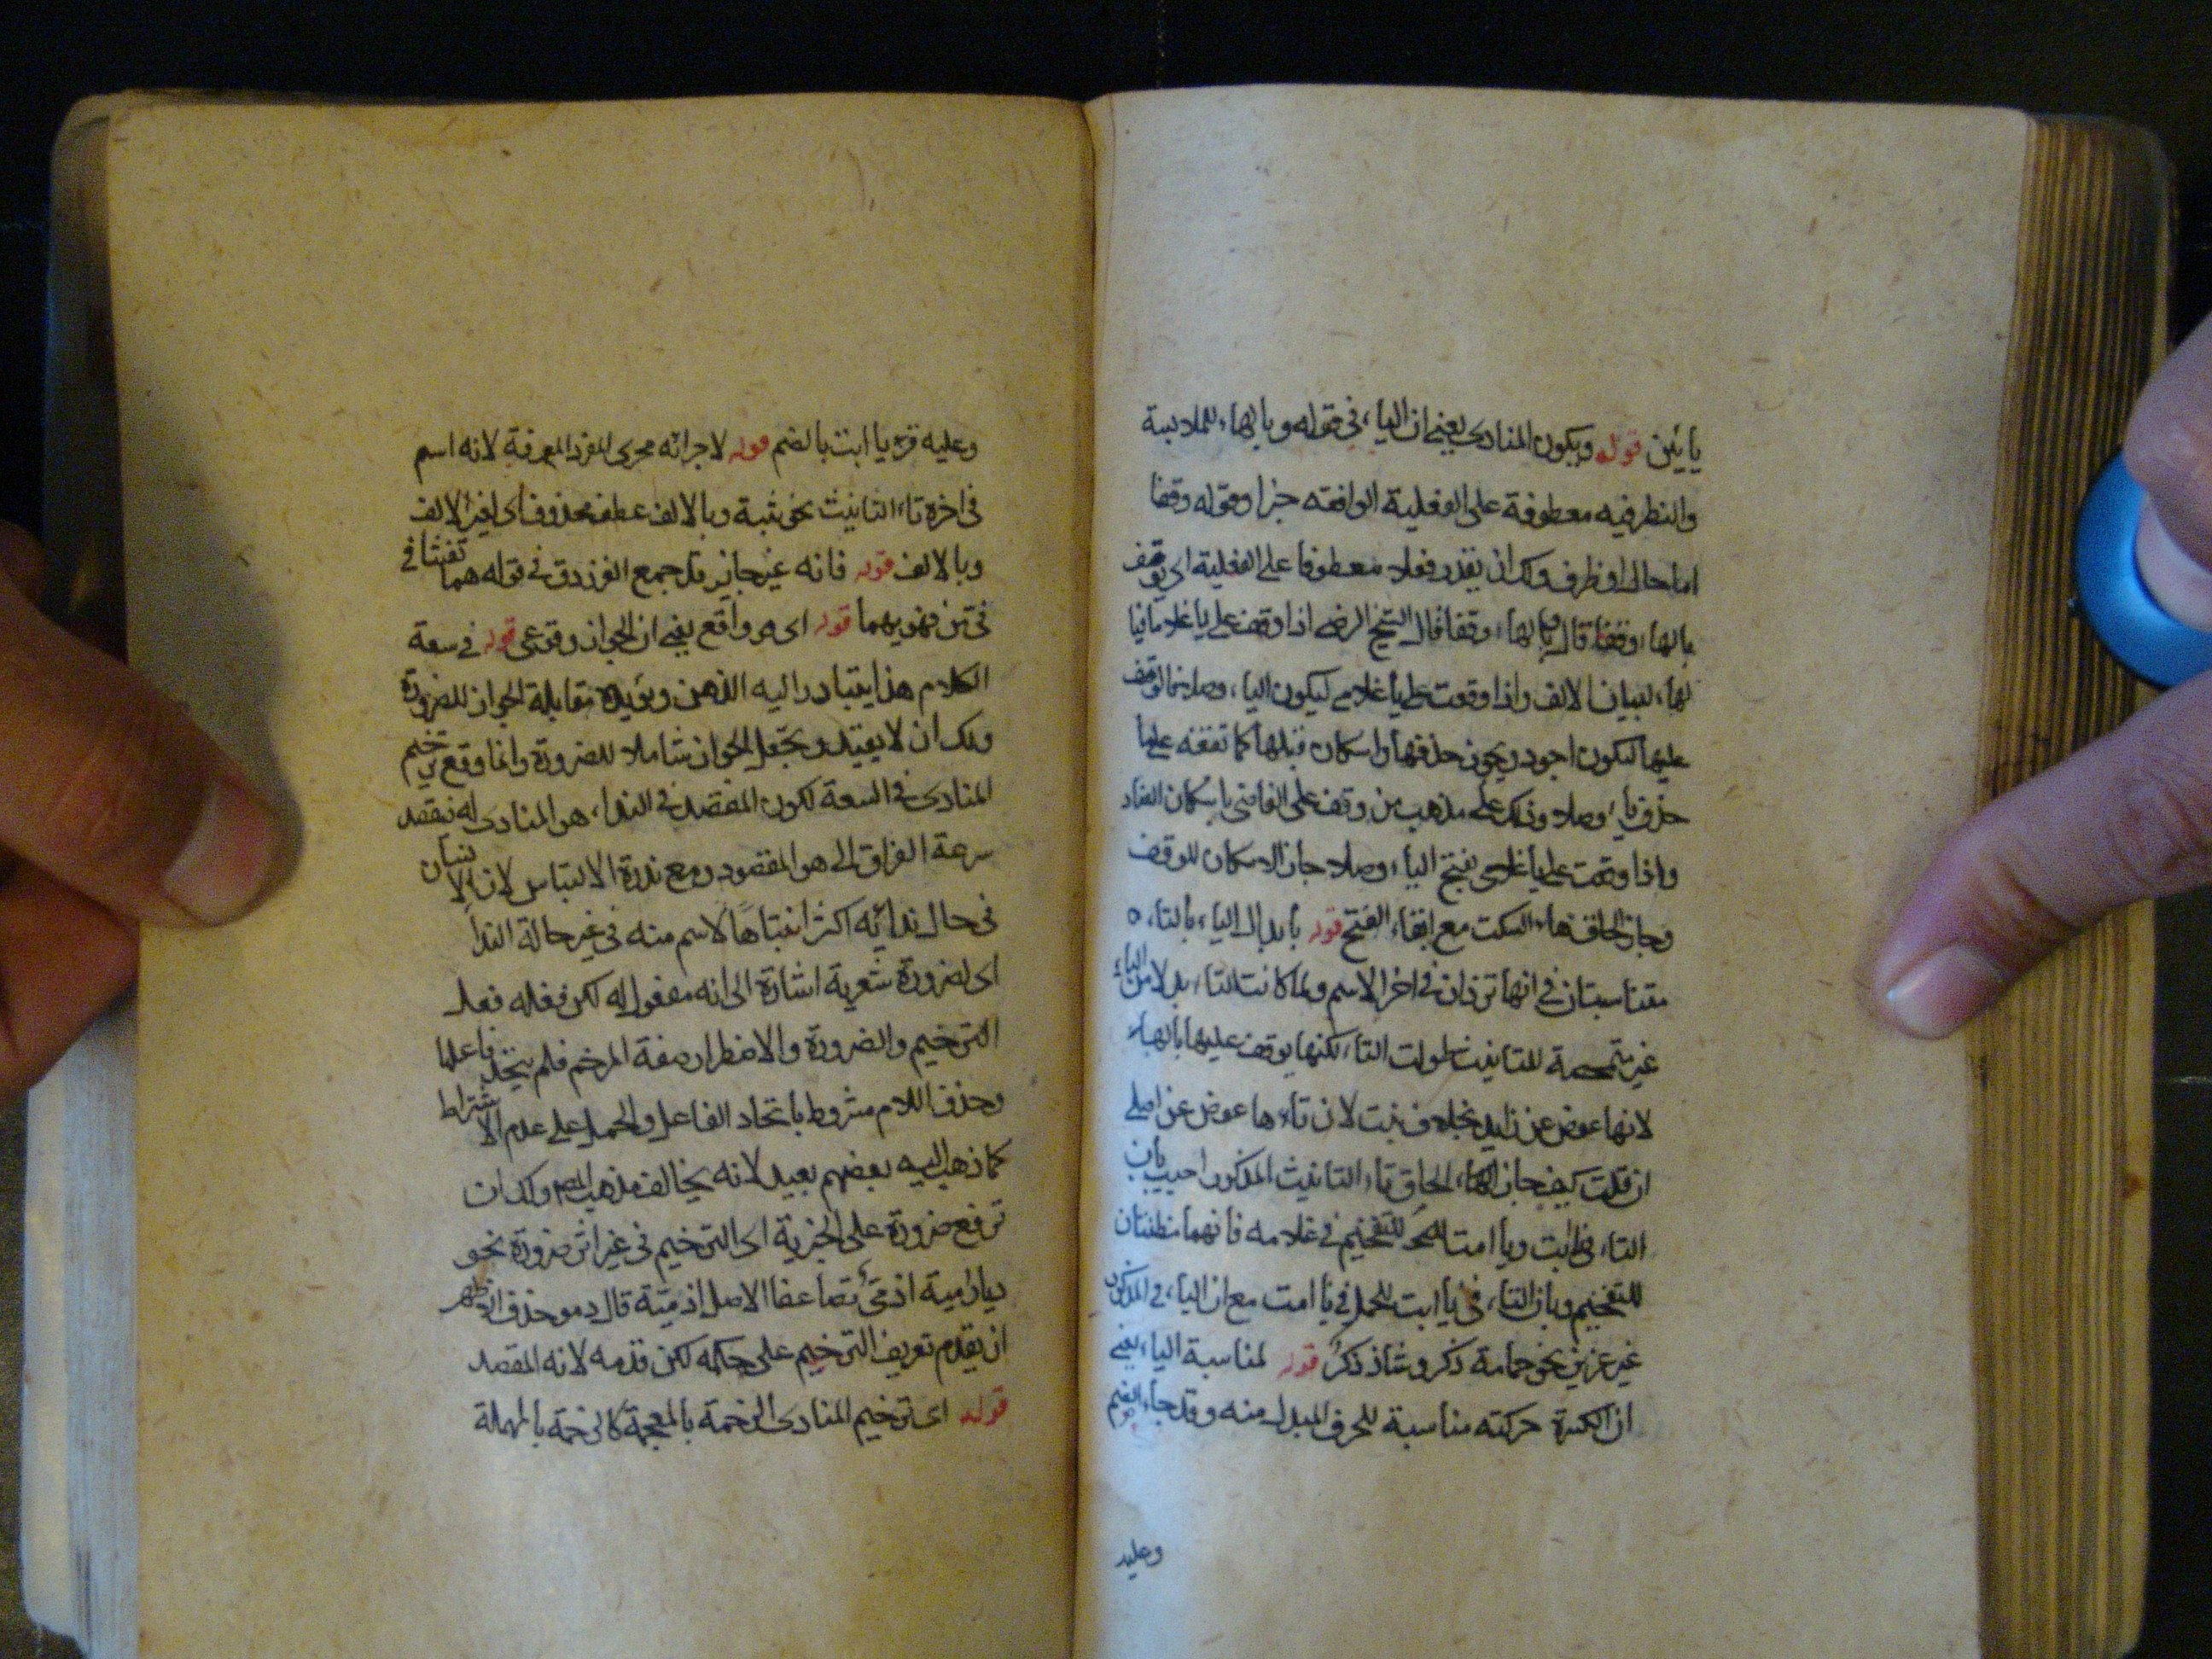 يائين قوله ويكون المنادى يعني ان الياء في قوله وبالهاء للملابسة
والظرفية معطوفة على الفعلية الواقعة خبرا وقوله وقفا
اما حال او ظرف ولك ان تقدر فعلا معطوفا على الفعلية اى يوقف
بالهاء وقفا قال وبالهاء وقفا قال الشيخ الرضى اذا وقف على يا غلاما فبا
لهاء لبيان الالف واذا وقفت على يا غلامى ليكون الياء وصلا فالوقف
عليها لسكون اجود ويجوز حذفها واسكان قبلها كما تقفه على ما
حذف ياء وصلا وذلك على مذهب من وقف على القاضى باسكان الضاد
واذا وقفت على يا غلامى بفتح الياء وصلا جاز الاسكان للوقف
وجاز الحاق هاء السكت مع ابقاء الفتح قوله بابدال الياء بالتاء ه
متناسبتان في انهما تزدان في اخر الاسم ولما كانت التاء بدلا من الياء
غير متمحضة للتانيث طولت التاء لكنها يوقف عليها بالهاء
لانها عوض عن زايد بخلاف بنت لان تاءها عوض عن اصلى
ان قلت كيف جاز الحاق تاء التانيث المذكور اجيب بان
التاء في يا ابت ويا امت للتفخيم في علامه فانهما مظنتان
للتفخيم وبان التاء في يا ابت للحمل في يا امت مع ان الياء في المذكور
غير عزيز نحو حمامة ذكر وشاة ذكر قوله لمناسبة الياء يعني
ان الكسرة حركته مناسبة للحرف المبدل منه وقد جاء الضم
وعليه
وعليه قرء يا ابت بالضم قوله لاجرائه مجرى المفرد المعرفة لانه اسم
في اخره تاء التانيث نحو ثبة وبالالف عطف محذوف اى
وبالالف قوله فانه غير جايز قد جمع الفرزدق في قوله هما نفثا في
في من فمويهما قوله اى هو واقع يعني ان الجواز وقوعى قوله في سعة
الكلام هذا يتبادر اليه الذهن ويؤيده مقابلة الجواز للضرورة
ولك ان لا يقيد ويجعل الجواز شاملا للضرورة وانما وقع ترخيم
المنادى في السعة لكون المقصد في النداء هو المنادى له فيقصد
سرعة الفراغ الى هو المقصود ومع ندرة الالتباس لان الانسان
في حال ندائه اكثر انتباها لاسم منه في غير حالة النداء
اى لضرورة شعرية اشارة الى انه مفعول له لكن فعله فعل
الترخيم والضرورة والاضطرار صفة المرخم فلم يتحد فاعلها
وحذف اللام مشروط باتحاد الفاعل والحمل على عدم الاشتراط
كما ذهب اليه بعضهم بعيد لانه يخالف مذهب المص ولك ان
ترفع ضرورة على الخبرية اى الترخيم في غير اثر ضرورة نحو
ديار مية اذ مى تصاعفا الاصل اذ مية قال دمو حذف
ان يقدم تعريف الترخيم على حكمه لكن قدمه لانه المقصد
قوله اى ترخيم المنادى الرخمة بالمعجمة كالرحمة بالمهملة